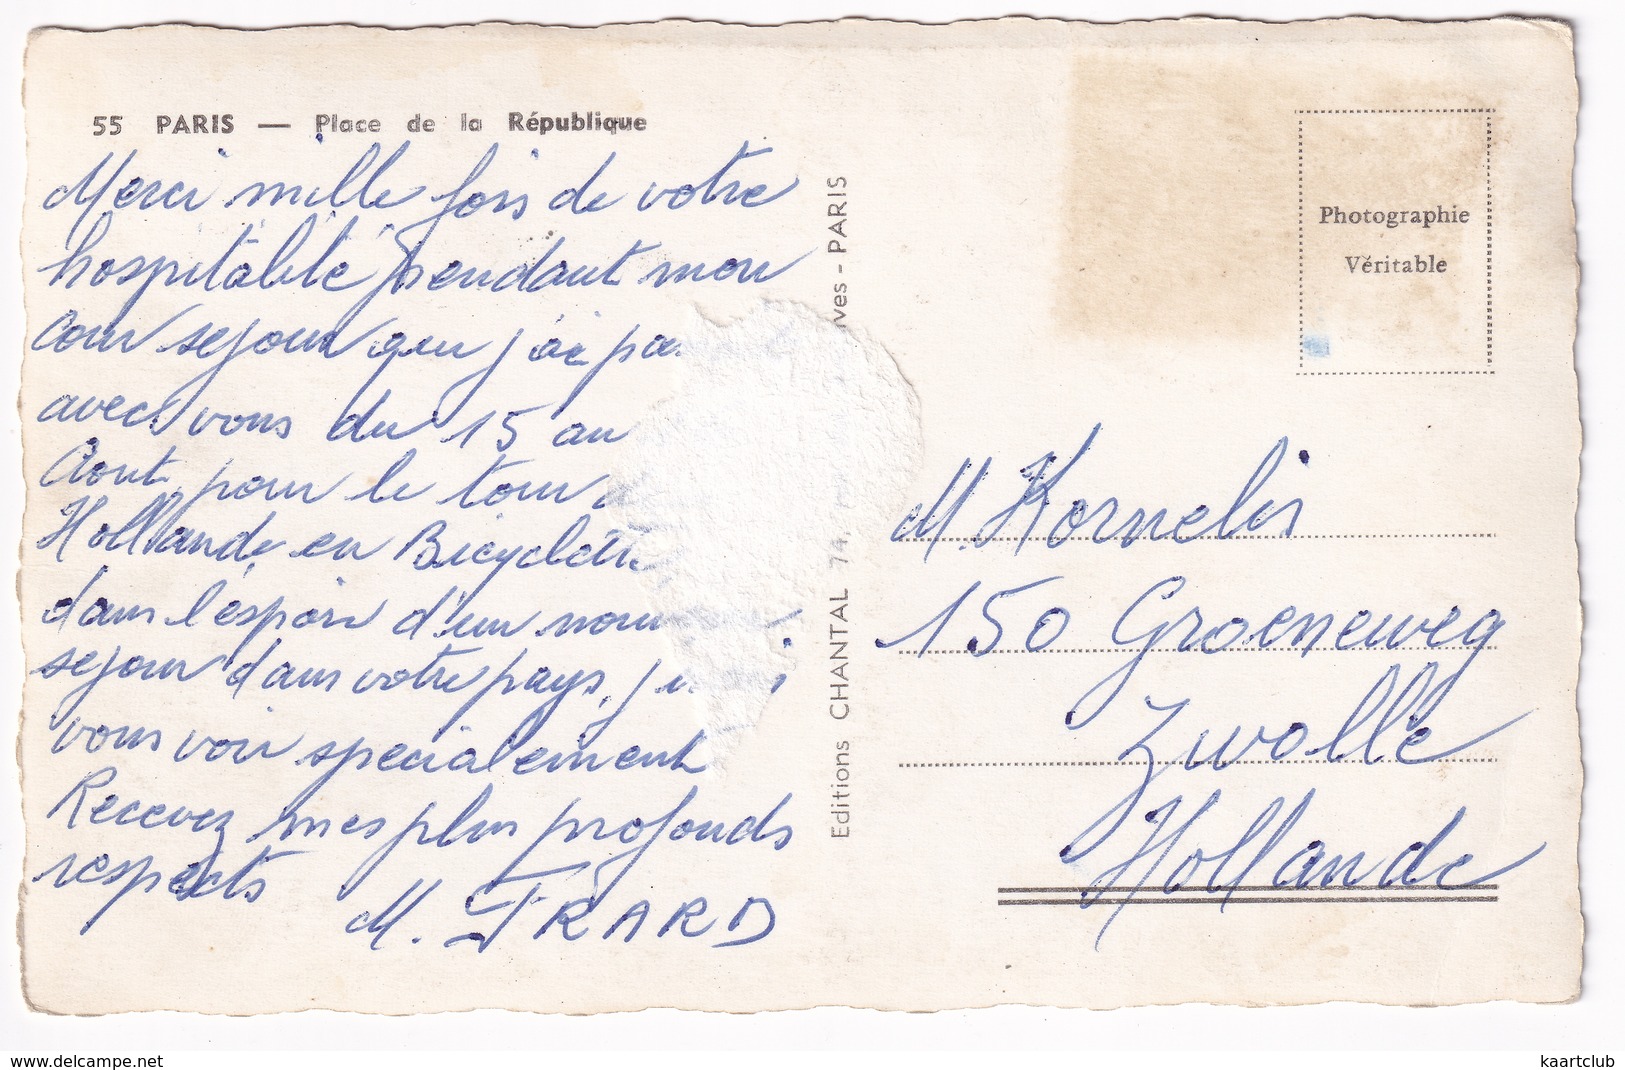 55 PARIS — Place de la République
Merci mille fois de votre
hospitalité pendant mon
cour sejour que j'ai
avec vous du 15 au
Aout pour le tour
Hollande en
dans l'espoir d'un
sejour dans votre pays,
vous voir specialement
Recevez mes plus profonds
respects
M. FRARD
Editions CHANTAL 74, ves - PARIS
Photographie
Véritable
M. Kornelis
150 Groeneweg
Zwolle
Hollande
www.delcampe.net
kaartclub